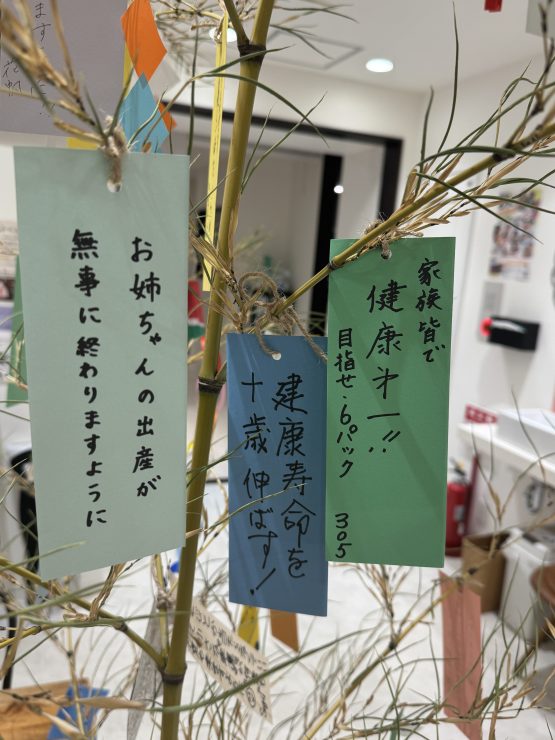 お姉ちゃんの出産が
無事に終わりますように
建康寿命を
十歳伸ばす!
家族皆で
健康才一!!
目指せ・6パック
305